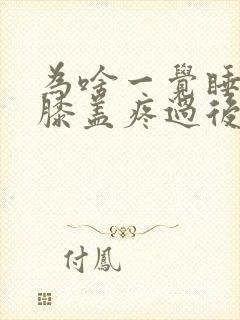 為啥一覺睡
膝蓋疼過後
付鳳